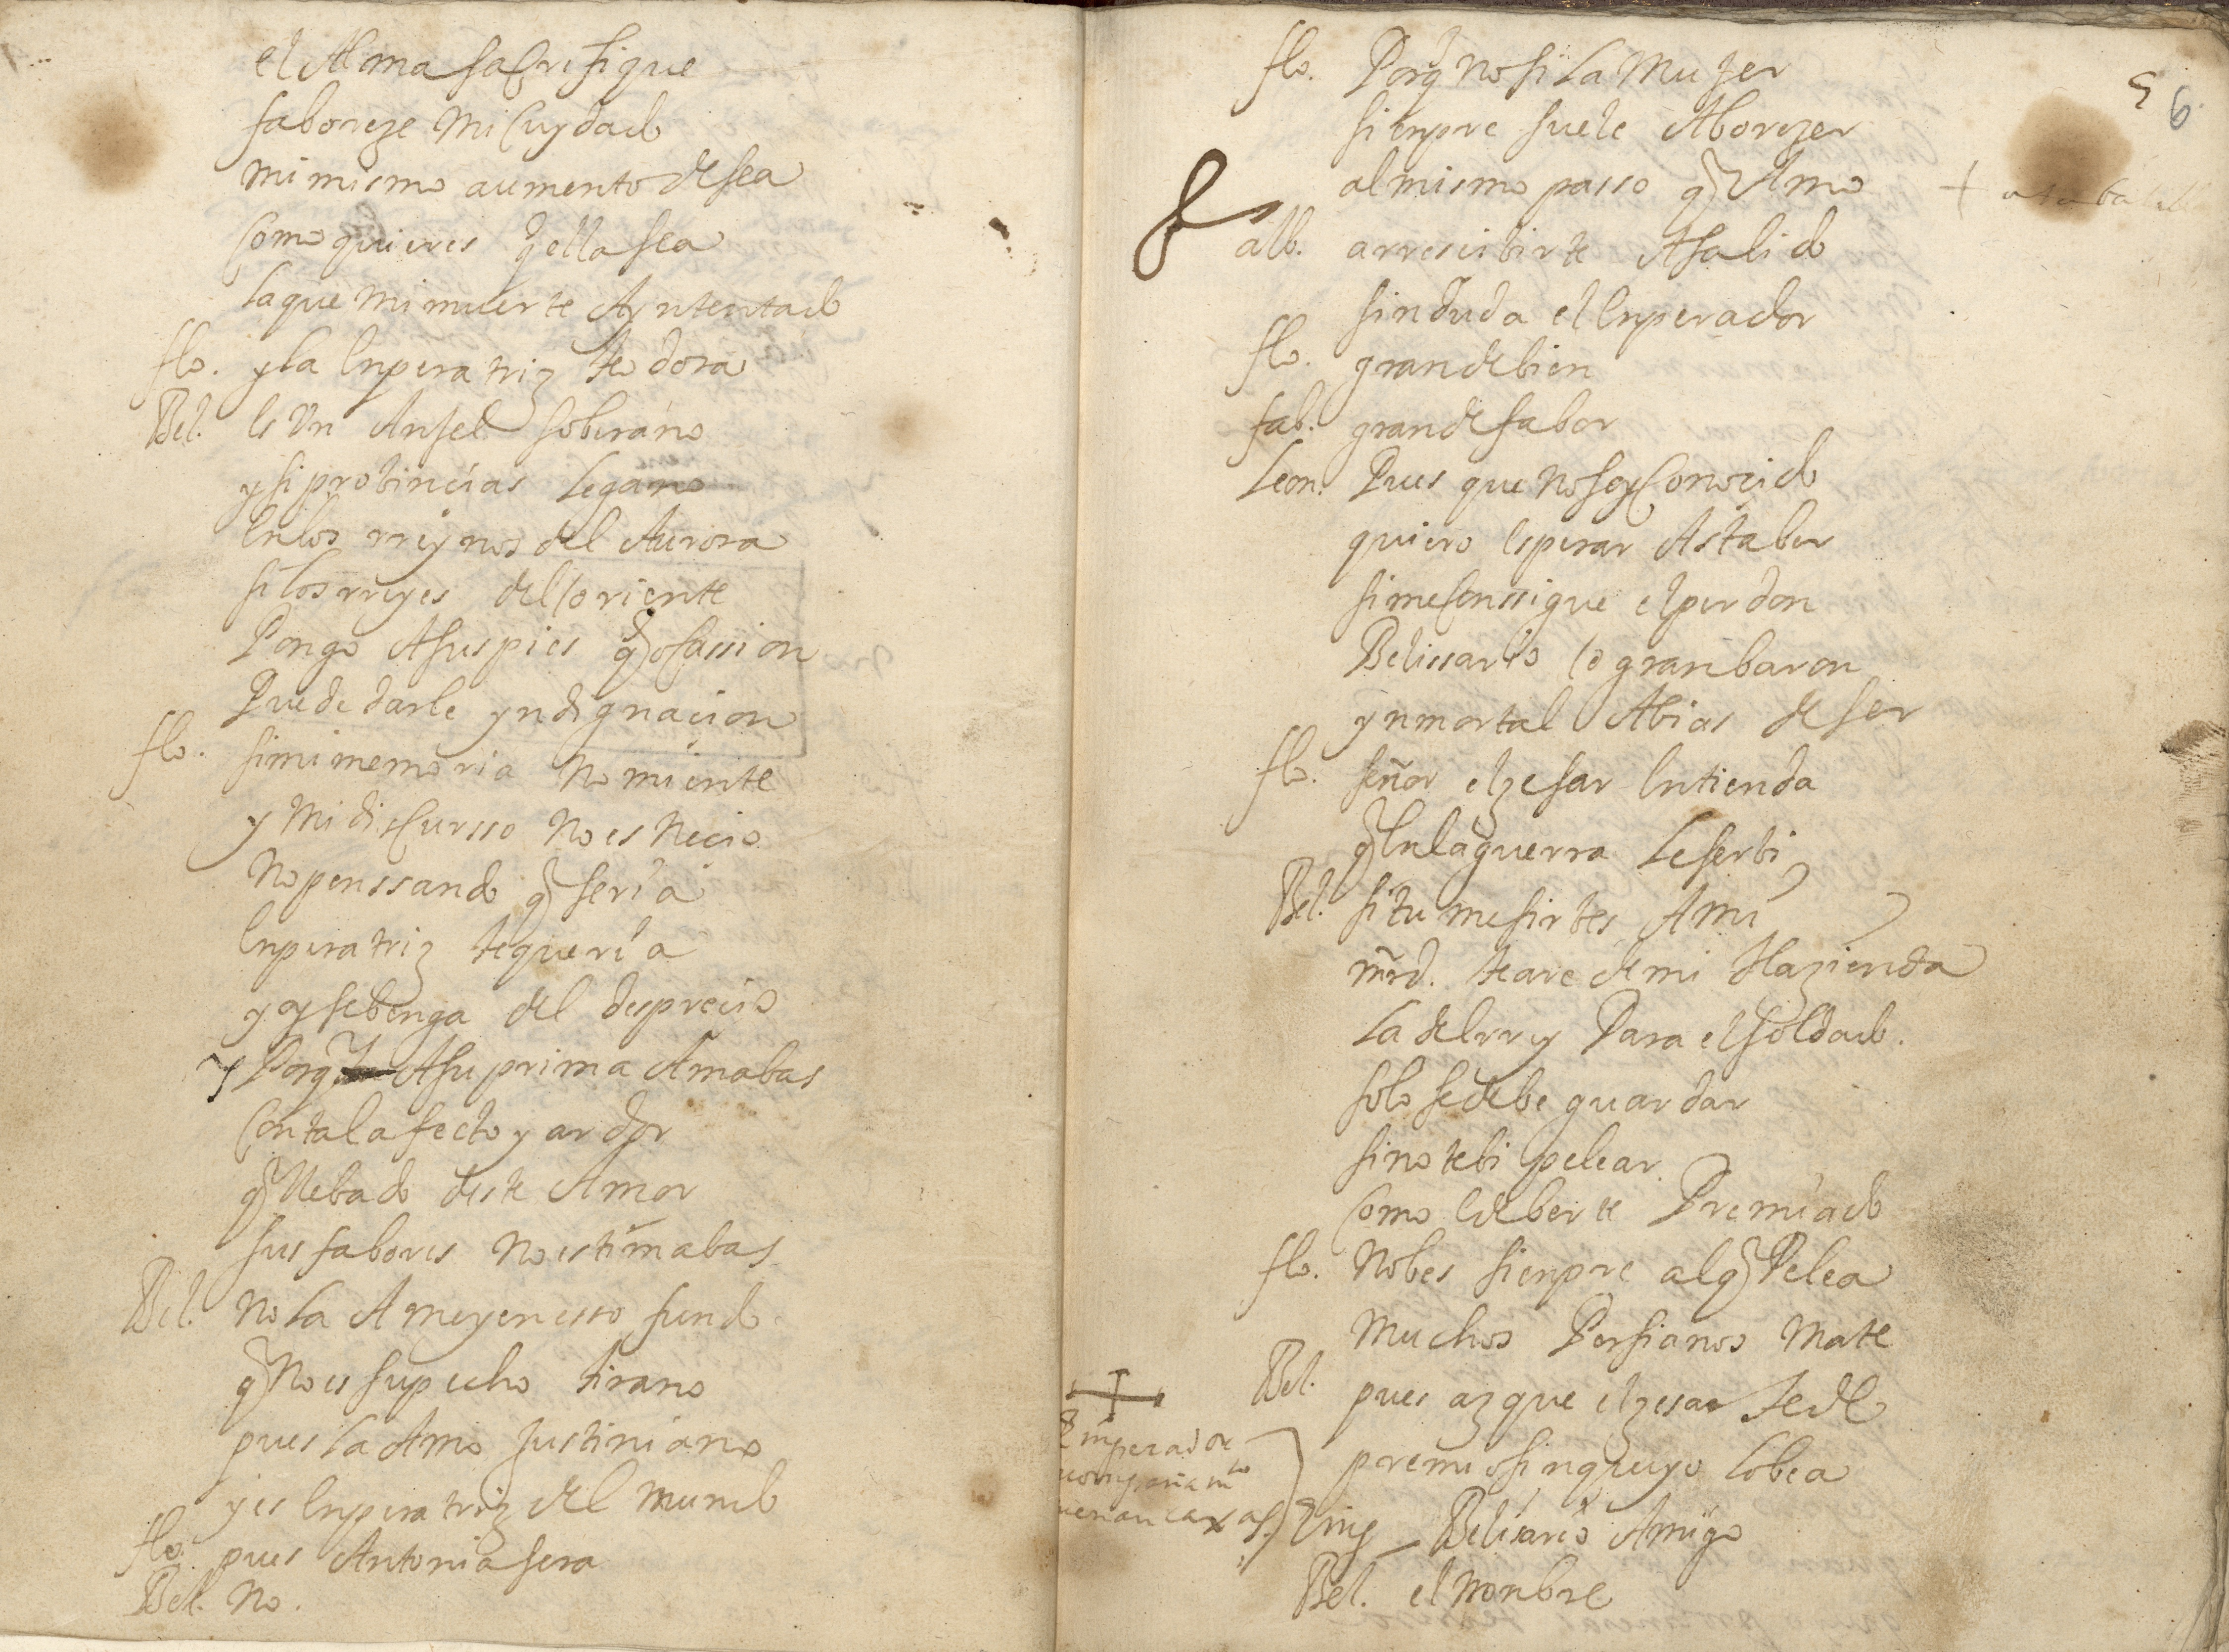 el Alma sacrifique
faboreze mi cuydado
mi mismo aumento desea
como quieres q ella sea
la que mi muerte A yntentado
flo. y la enperatriz teodora
Bel. es Un Anjel soberano
y si probincias le gano
en los rreynos del Aurora
si los rreyes del oriente
Pongo A sus pies q ocassion
Puede darle yndignacion
flo. si mi memoria no miente
y mi discursso no es necio
no penssando q seria
enperatriz te queria
y oy se benga del desprecio
y Porq A su prima Amabas
con tal afecto y ardor
q llebado deste Amor
sus fabores no estimabas
Bel. no la Ame y en esso fundo
q no es su pecho tirano
pues la Amo justiniano
y es enperatriz del mundo
flo. pues Antonia sera
Bel. no.
5 6
flo. Porq no si la mujer
sienpre suele Aborezer
al mismo passo q Amo
alb. a rrescibirte A salido
sin duda el enperador
flo. grande bien
fab. grande fabor
Leon. Pues que no soy conozido
quiero esperar Asta ber
si me conssigue el perdon
Belissario o gran baron
ynmortal Abias de ser
flo. señor el zesar entienda
q en la guerra le serbi
Bel. si tu me sirbes A mi
mrd. te are de mi Hazienda
la del rrey Para el soldado.
solo se debe guardar
si no te bi pelear
como e de berte Premiado
flo. no bes sienpre al q Pelea
muchos Persianos mate
Bel. pues az que el zesar te de
premio sin que yo lo bea
Emperador
acompañamto
uenan caxas
Emp Belisario Amigo
Bel. el nonbre